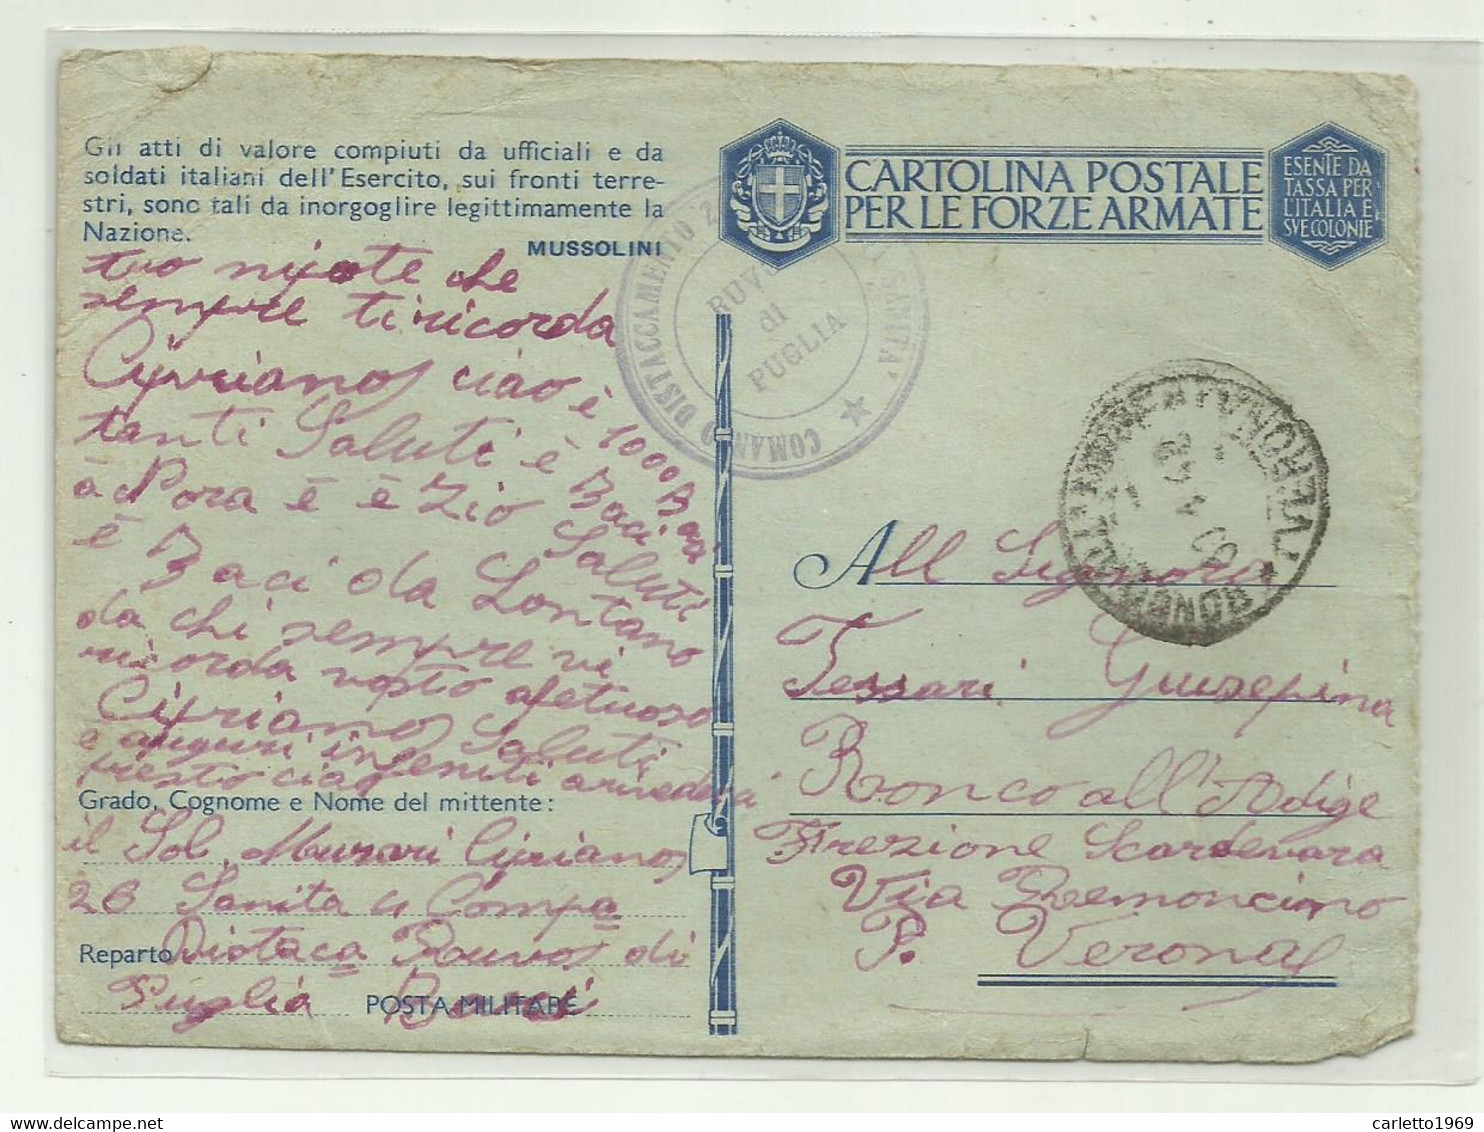 Gli atti di valore compiuti da ufficiali e da
soldati italiani dell'Esercito, sui fronti terre-
stri, sono tali da inorgoglire legittimamente la
Nazione.
MUSSOLINI
tuo nipote che
sempre ti ricorda
Cipriano ciao è 1000 Baci
tanti Saluti è Baci
à Nora è è Zio Saluti
è Baci da Lontano
da chi sempre vi
ricorda vosto afetuoso
Cipriano Saluti
e auguri infeniti arivederci
presto ciao
Grado, Cognome e Nome del mittente:
il Sol. Murari Cipriano
26 Sanita 4 Compa
Reparto Distaca Ruvo di
Puglia POSTA MILITARE Bari
CARTOLINA POSTALE
PER LE FORZE ARMATE
ESENTE DA
TASSA PER
L'ITALIA E
SVE COLONIE
COMANDO DISTACCAMENTO 2 SANITA'
RUVO
di
PUGLIA
RONCO ALL'ADIGE
(VERONA)
All Signora
Tessari Giusepina
Ronco all'Adige
Frezione Scardevara
Via Remoncino
P. Verona
carletto1969